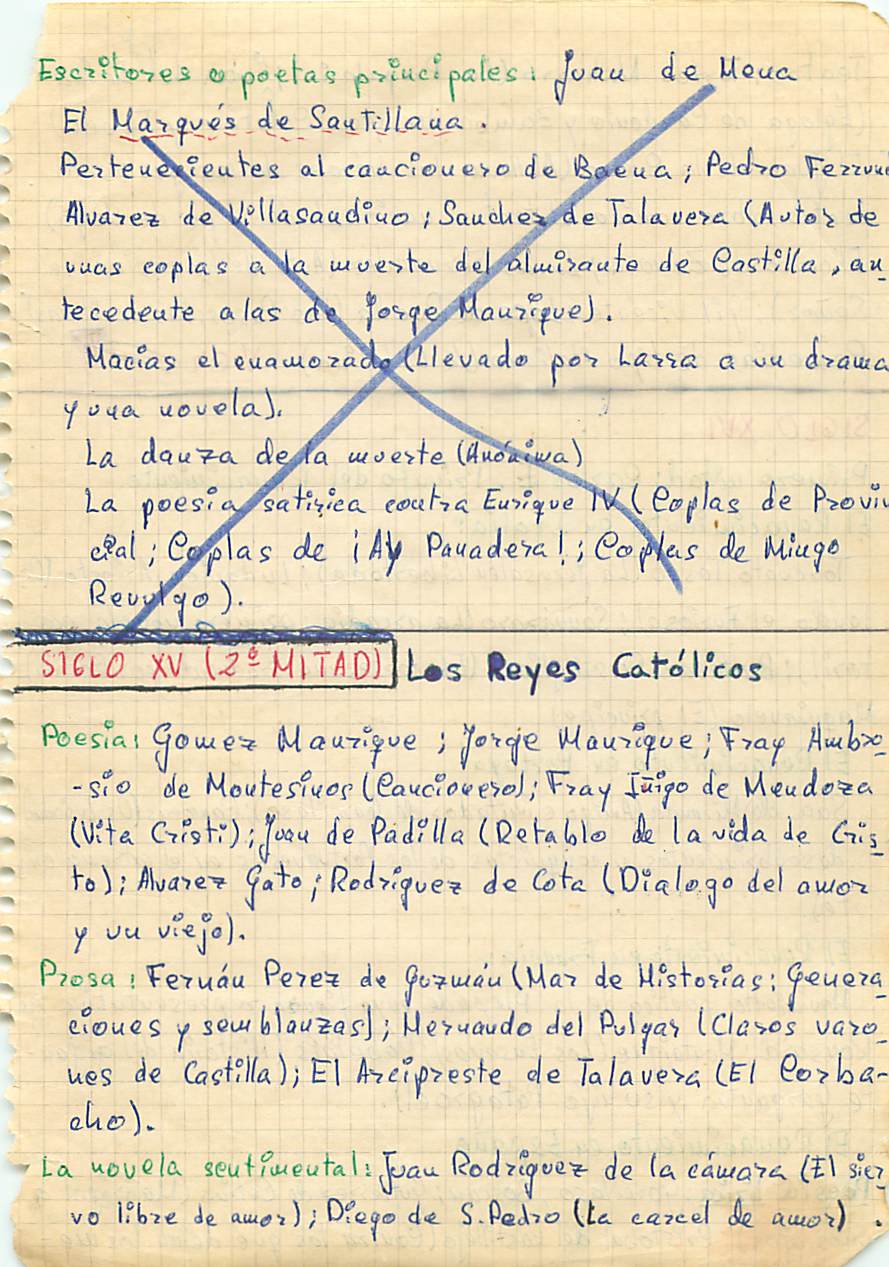 Escritores o poetas principales: Juan de Mena
El Marqués de Santillana.
Pertenecientes al cancionero de Baena; Pedro Ferrus
Alvarez de Villasandino; Sanchez de Talavera (Autor de
unas coplas a la muerte del almirante de Castilla, an
tecedente a las de Jorge Manrique).
Macías el enamorado (Llevado por Larra a un drama
y una novela).
La danza de la muerte (Anónima)
La poesía satirica contra Enrique IV (Coplas de Provin
cial; Coplas de ¡Ay Panadera!; Coplas de Mingo
Revulgo).
SIGLO XV (2ª MITAD) Los Reyes Católicos
Poesía: Gomez Manrique; Jorge Manrique; Fray Ambro
-sio de Montesinos (Cancionero); Fray Iñigo de Mendoza
(Vita Cristi); Juan de Padilla (Retablo de la vida de Cris
to); Alvarez Gato; Rodríguez de Cota (Dialogo del amor
y un viejo).
Prosa: Fernán Perez de Guzmán (Mar de Historias; Genera
ciones y semblanzas); Hernando del Pulgar (Claros varo
nes de Castilla); El Arcipreste de Talavera (El Corba-
cho).
La novela sentimental: Juan Rodríguez de la cámara (El sier
vo libre de amor); Diego de S. Pedro (La carcel de amor).